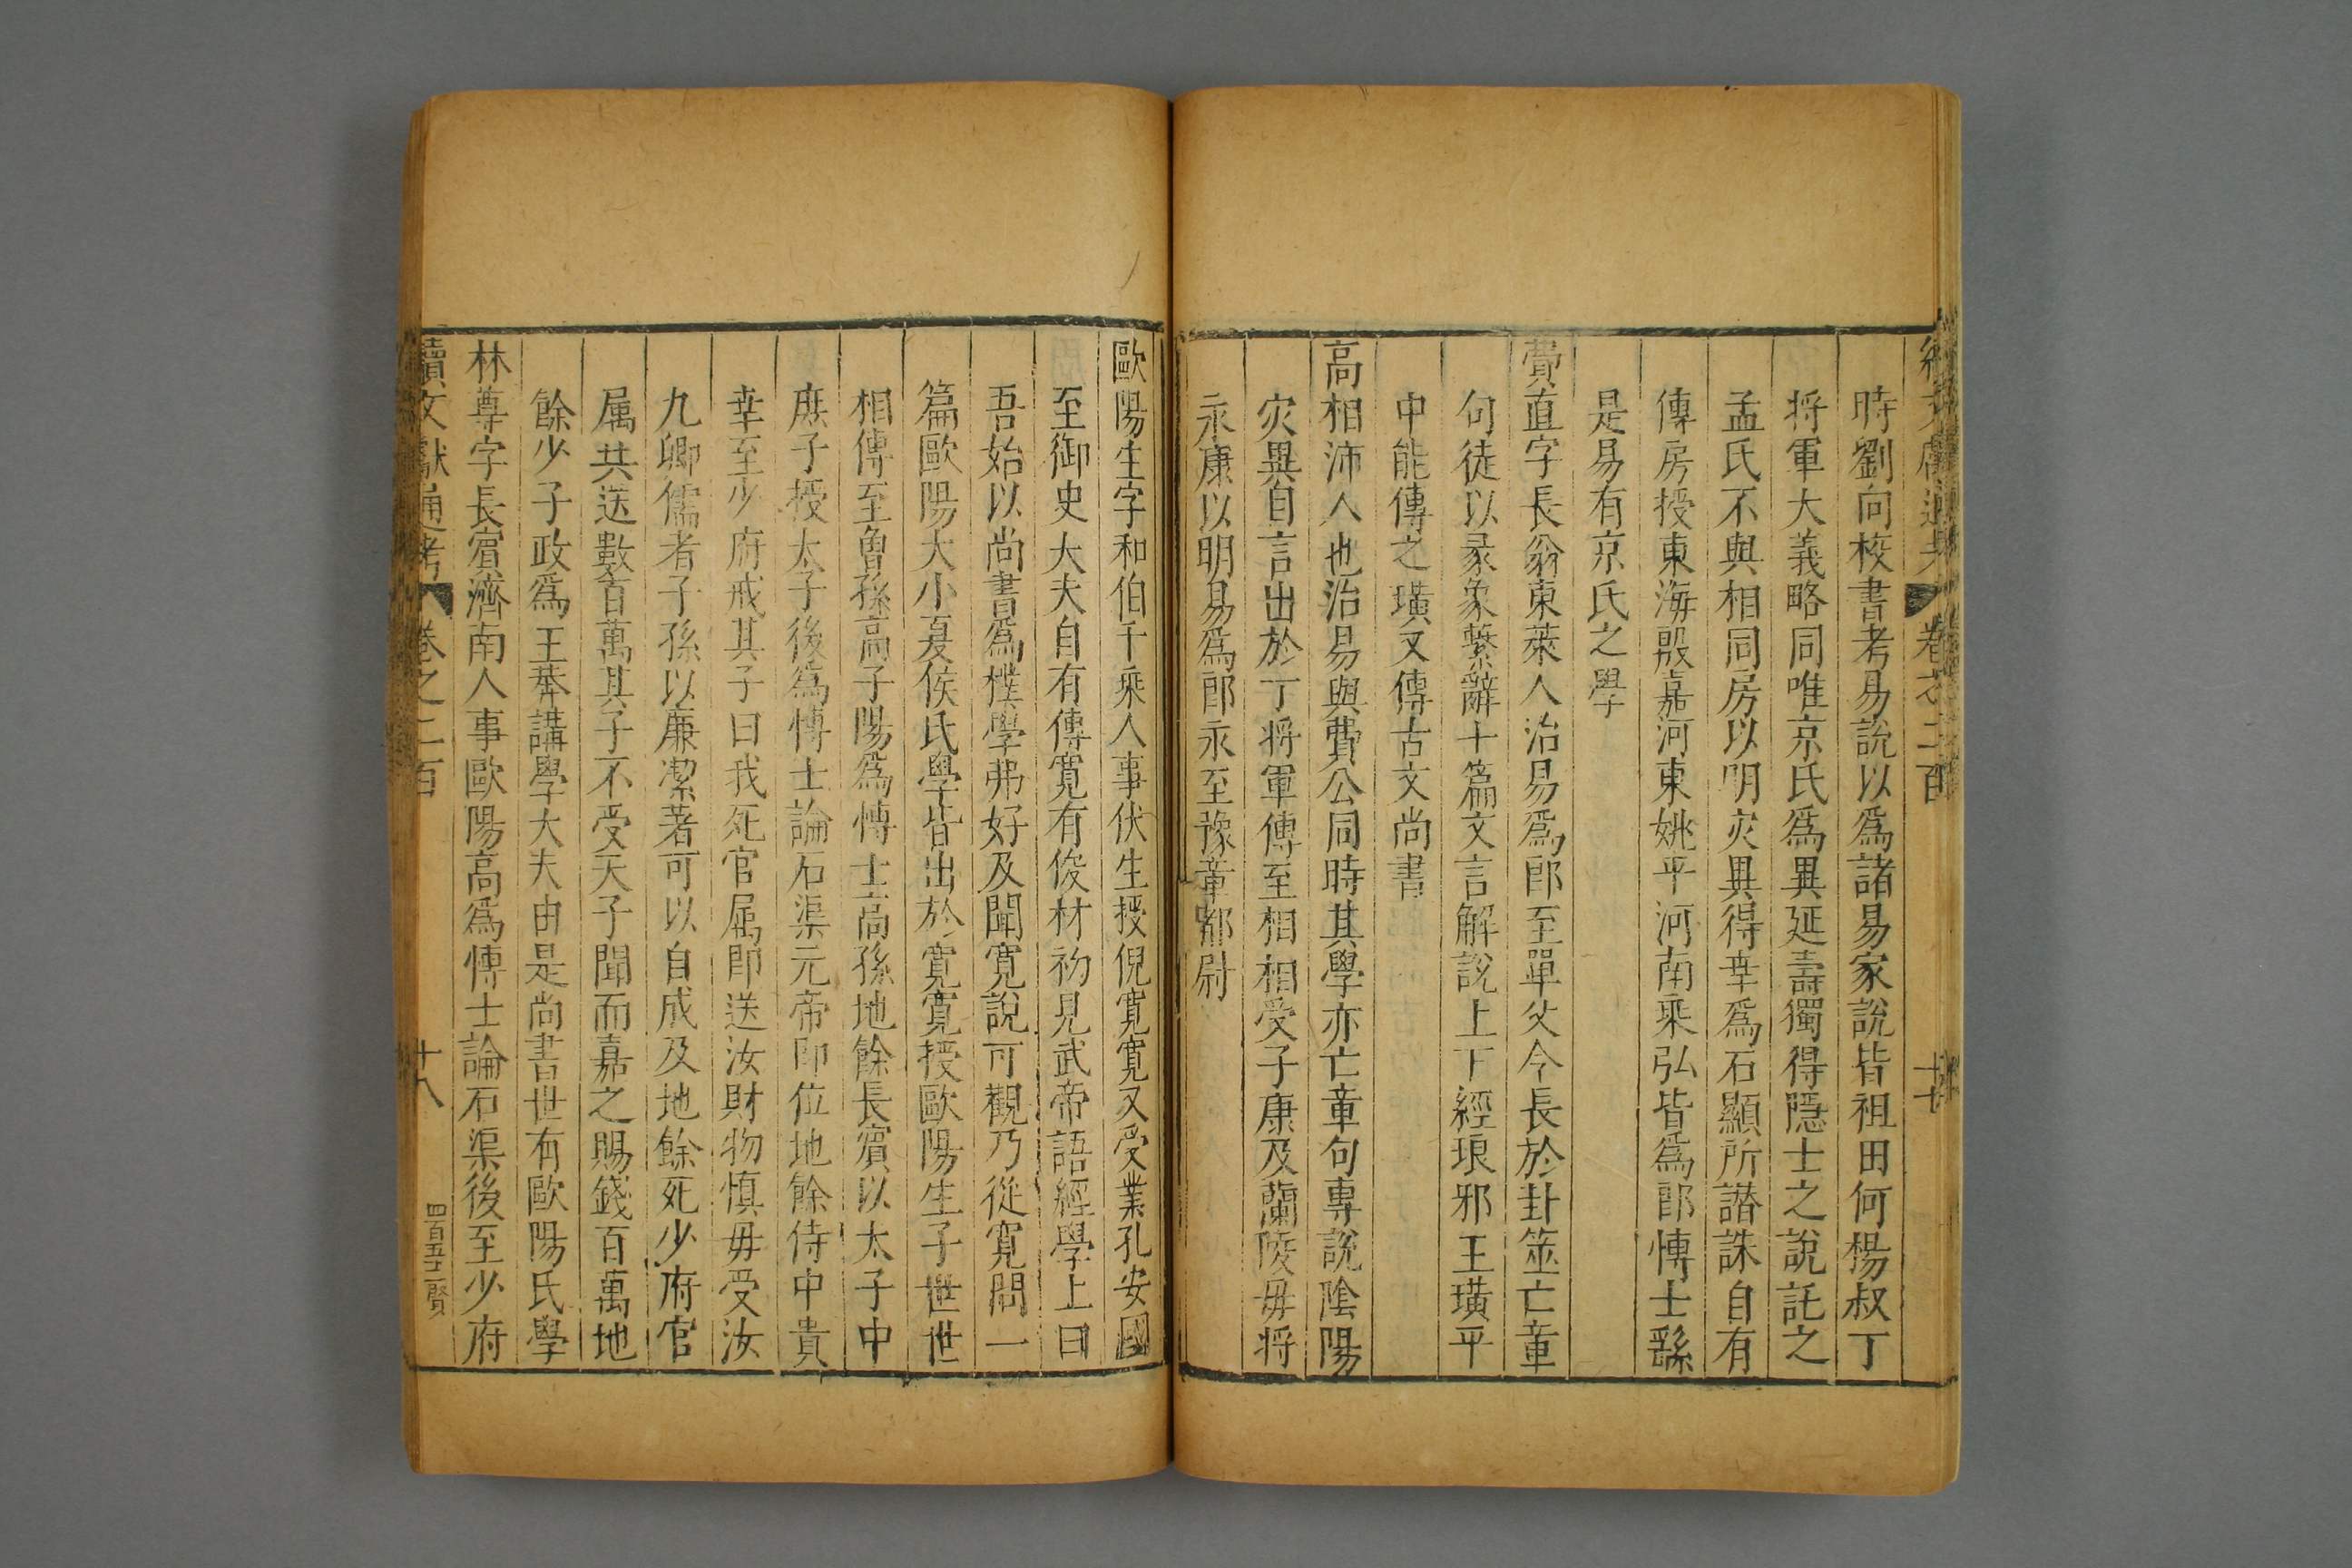 續文獻通考 卷之二百 十七
時劉向校書考易說以爲諸易家說皆祖田何楊叔丁
将軍大義略同唯京氏爲異延壽獨得隱士之說託之
孟氏不與相同房以明灾異得幸爲石顯所譖誅自有
傳房授東海殷嘉河東姚平河南乘弘皆爲郎博士繇
是易有京氏之學
費直字長翁東萊人治易爲郎至單父令長於卦筮亡章
句徒以彖象繫辭十篇文言解說上下經琅邪王璜平
中能傳之璜又傳古文尚書
高相沛人也治易與費公同時其學亦亡章句專說陰陽
灾異自言出於丁将軍傳至相相受子康及蘭陵毋将
永康以明易爲郎永至豫章都尉
歐陽生字和伯千乘人事伏生授倪寬寬又受業孔安國
至御史大夫自有傳寬有俊材初見武帝語經學上曰
吾始以尚書爲樸學弗好及聞寬說可觀乃從寬問一
篇歐陽大小夏侯氏學皆出於寬寬授歐陽生子世世
相傳至曾孫高子陽爲博士高孫地餘長賓以太子中
庶子授太子後爲博士論石渠元帝即位地餘侍中貴
幸至少府戒其子曰我死官属即送汝財物慎毋受汝
九卿儒者子孫以廉潔著可以自成及地餘死少府官
属共送數百萬其子不受天子聞而嘉之賜錢百萬地
餘少子政爲王莽講學大夫由是尚書世有歐陽氏學
林尊字長賓濟南人事歐陽高爲博士論石渠後至少府
續文獻通考 卷之二百 十八 四百五十二 賢